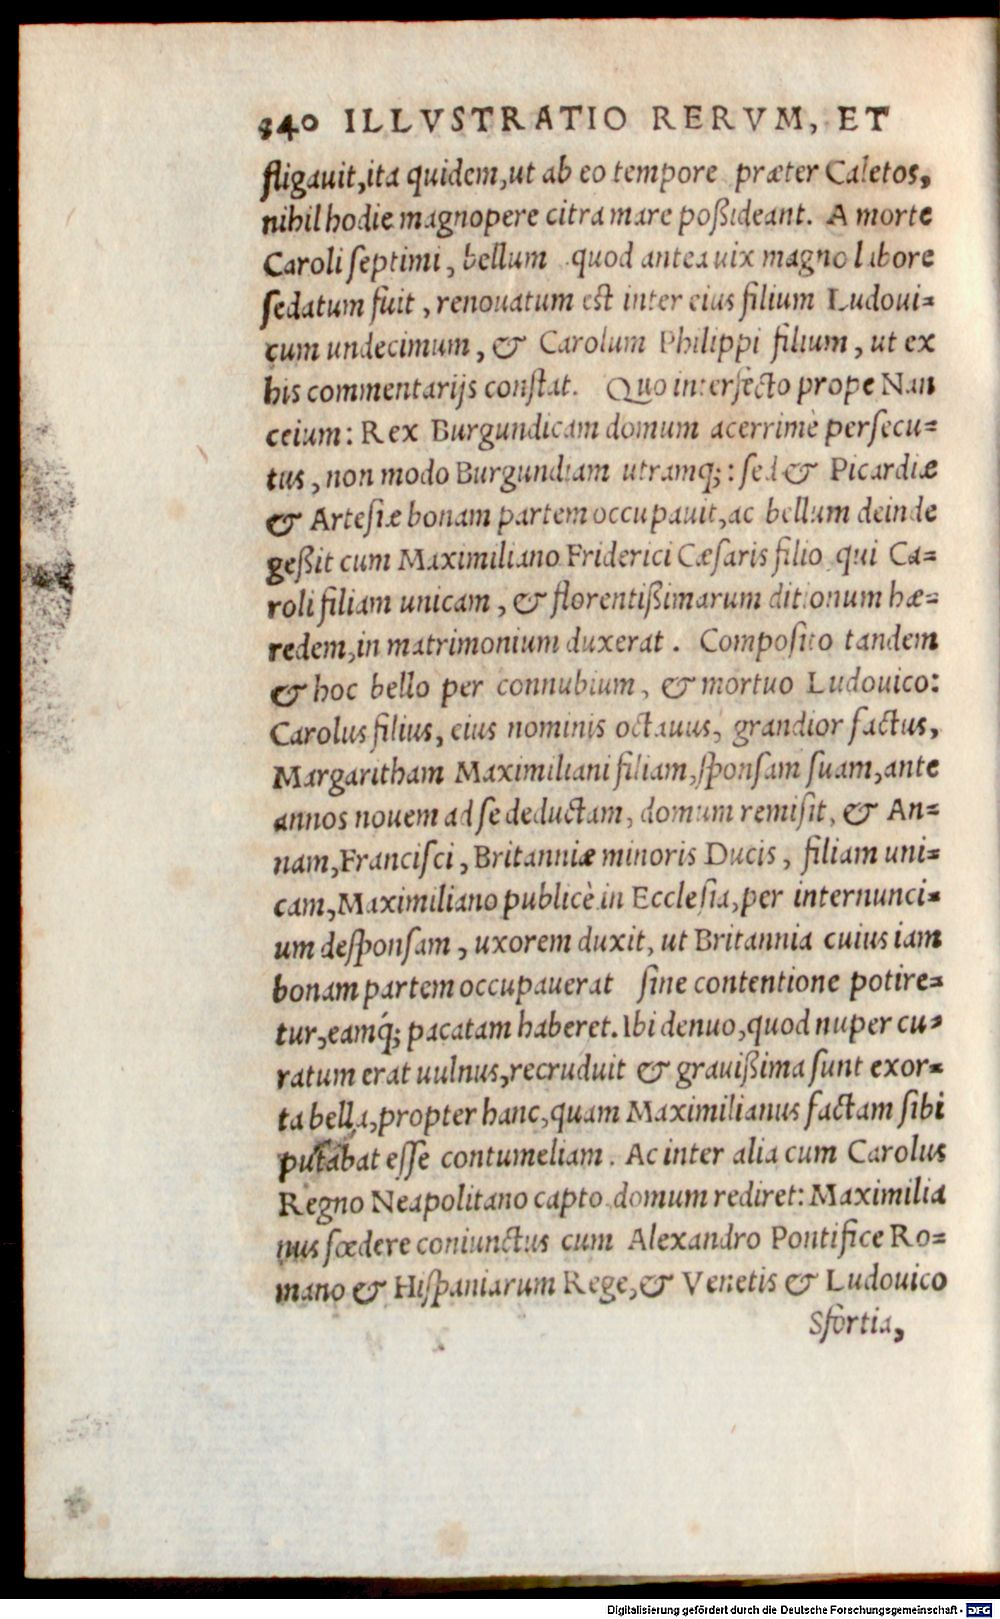 340 ILLVSTRATIO RERVM, ET
fligauit, ita quidem, ut ab eo tempore præter Caletos,
nihil hodie magnopere citra mare poßideant. A morte
Caroli ſeptimi, bellum quod antea uix magno labore
ſedatum fuit, renouatum est inter eius filium Ludoui=
cum undecimum, & Carolum Philippi filium, ut ex
his commentarijs conſtat. Quo interfecto prope Nan
ceium: Rex Burgundicam domum acerrimè perſecu=
tus, non modo Burgundiam utramq;: ſed & Picardiæ
& Arteſiæ bonam partem occupauit, ac bellum deinde
geßit cum Maximiliano Friderici Cæſaris filio qui Ca=
roli filiam unicam, & florentißimarum ditionum hæ=
redem, in matrimonium duxerat. Compoſito tandem
& hoc bello per connubium, & mortuo Ludouico:
Carolus filius, eius nominis octauus, grandior factus,
Margaritham Maximiliani filiam, ſponſam ſuam, ante
annos nouem ad ſe deductam, domum remiſit, & An=
nam, Franciſci, Britanniæ minoris Ducis, filiam uni=
cam, Maximiliano publicè in Eccleſia, per internunci=
um deſponſam, uxorem duxit, ut Britannia cuius iam
bonam partem occupauerat ſine contentione potire=
tur, eamq́; pacatam haberet. Ibi denuo, quod nuper cu=
ratum erat uulnus, recruduit & grauißima ſunt exor=
ta bella, propter hanc, quam Maximilianus factam ſibi
putabat eſſe contumeliam. Ac inter alia cum Carolus
Regno Neapolitano capto domum rediret: Maximilia
nus fœdere coniunctus cum Alexandro Pontifice Ro=
mano & Hiſpaniarum Rege, & Venetis & Ludouico
Sfortia,
Digitalisierung gefördert durch die Deutsche Forschungsgemeinschaft - DFG